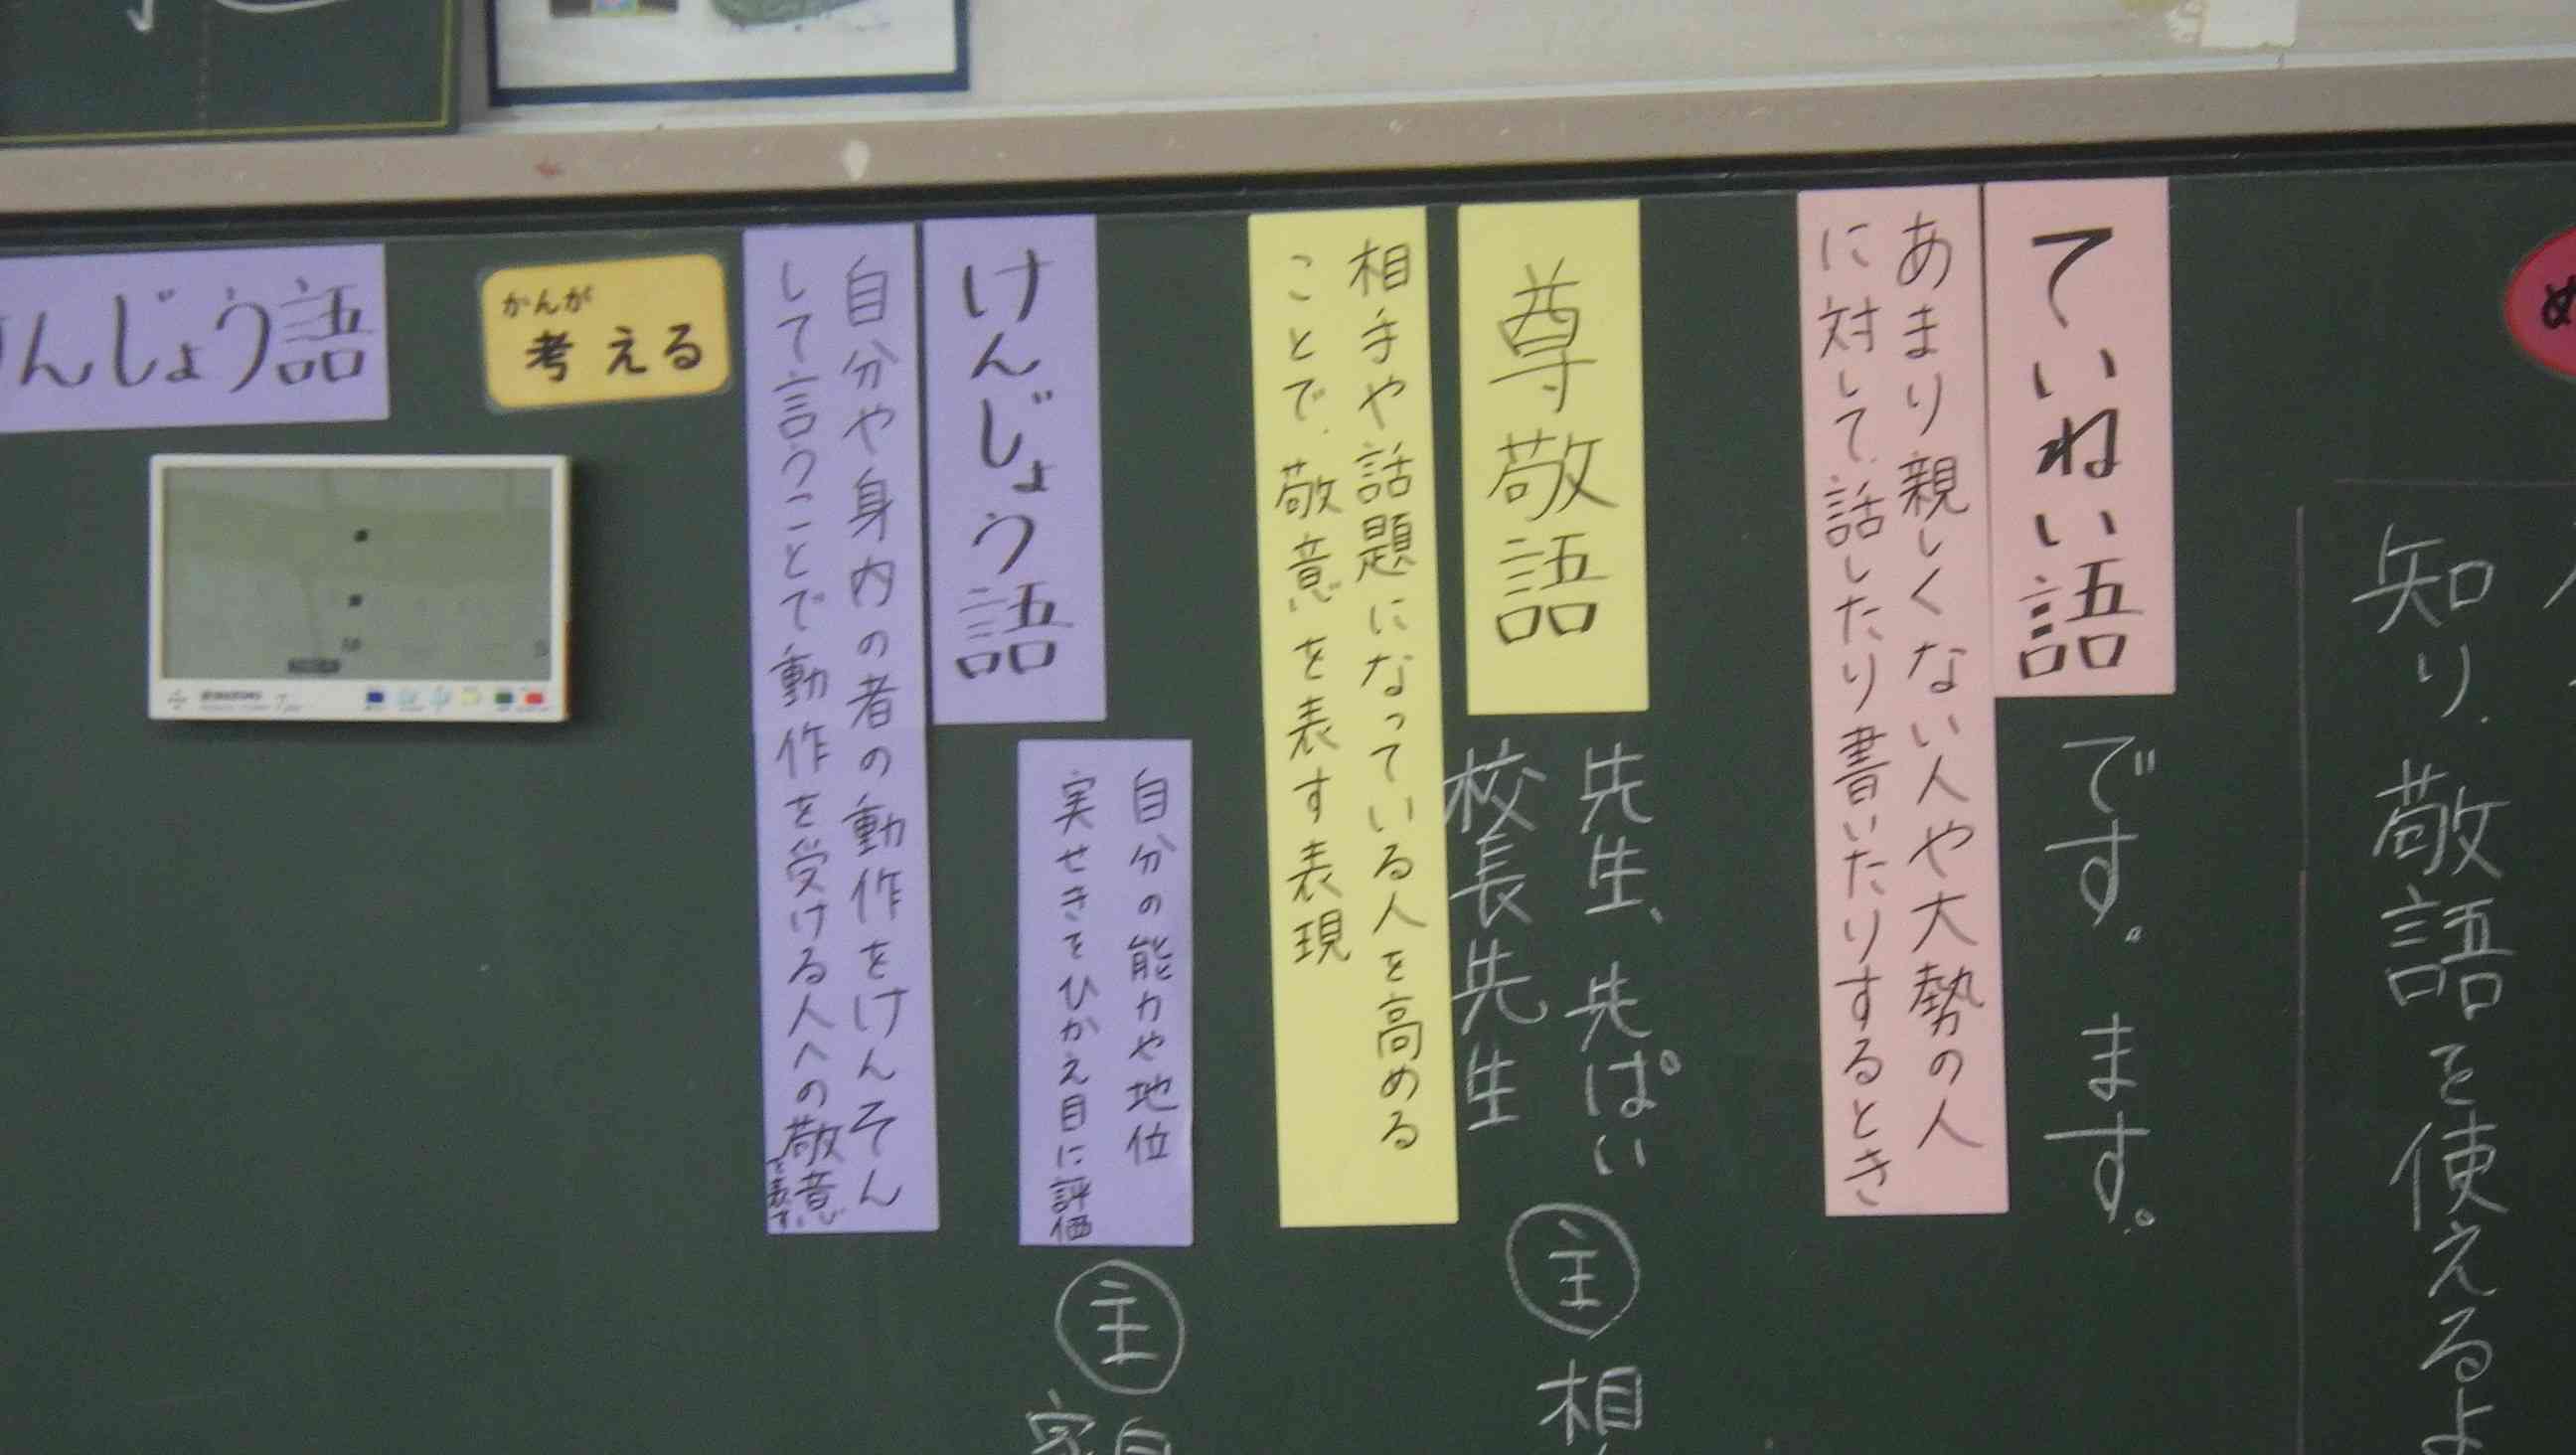 め
知り、敬語を使えるよ
ていねい語
です。ます。
あまり親しくない人や大勢の人
に対して、話したり書いたりするとき
尊敬語
先生、先ぱい
校長先生
主 相
相手や話題になっている人を高める
ことで、敬意を表す表現
けんじょう語
自分の能力や地位
実せきをひかえ目に評価
主
自
家
自分や身内の者の動作をけんそん
して言うことで動作を受ける人への敬意
を表す。
かんが
考える
んじょう語